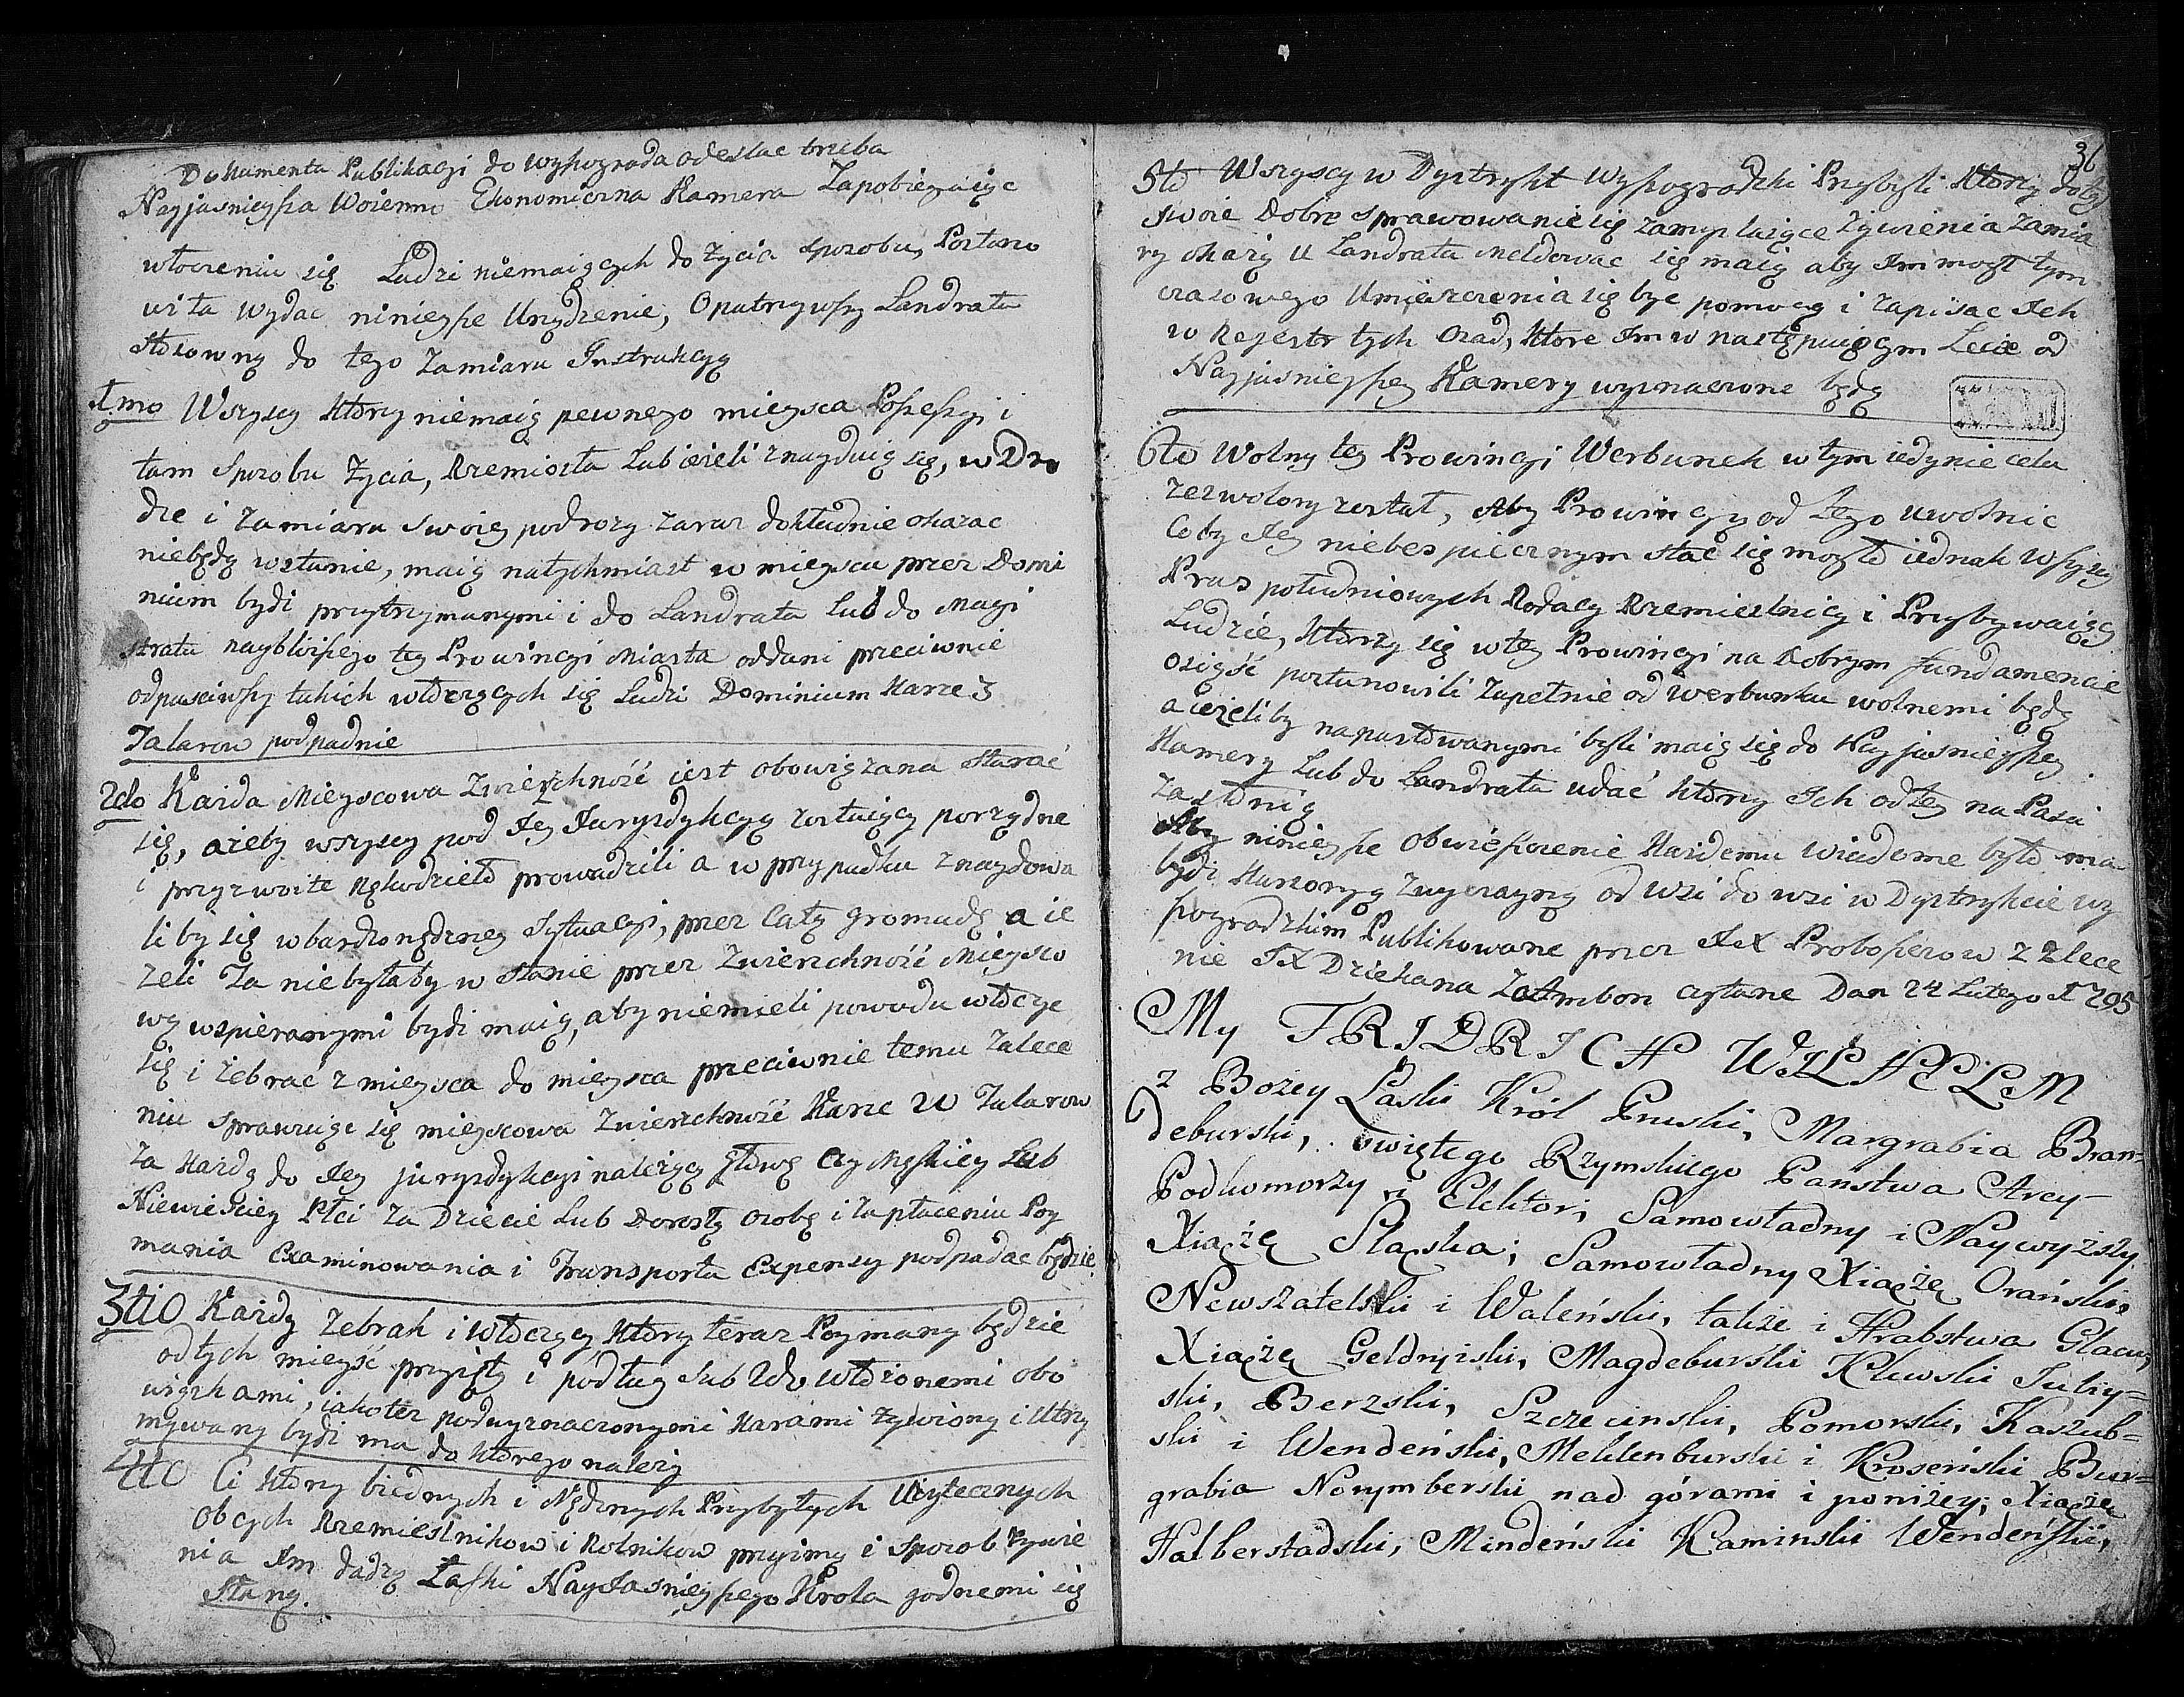 Dokumenta Publikacyi do Wyszogroda odeslac trzeba
Nayjasnieysza Woienno Ekonomiczna Kamera Zapobiegaiąc
włoczeniu się Ludzi niemaiących do życia sposobu, Postano
wiła wydac ninieysze Urządzenie, Opatrzywszy Landrata
stosowną do tego zamiaru Instrukcyą
1mo Wszyscy ktorzy niemaią pewnego mieysca Possessyi i
tam sposobu życia, Rzemiosła Lub ieżeli znayduią się, w Dro
dze i zamiaru swoiey podrozy zaraz dokładnie okazac
niebędą wstanie, maią natychmiast w mieyscu przez Domi
nium bydź przytrzymanymi i do Landrata Lub do Magi
stratu nayblizszego tey Prowincyi Miasta oddani przeciwnie
odpusciwszy takich włoczących się Ludzi Dominium Karze 3
Talarow podpadnie
2do Każda Mieyscowa Zwierzchność iest obowiązana starać
się, ażeby wszyscy pod Jey Juryzdykcyą zostaiący porządne
i przyzwoite rękodzieło prowadzili a w przypadku znaydowa
li by się w bardzo nędzney Sytuacyi, przez całą gromadę a ie
żeli Ta niebyłaby w stanie przez Zwierzchność Mieysco
wą wspieranymi bydź maią, aby niemieli powodu włoczyc
się i żebrać z mieysca do mieysca przeciwnie temu zalece
niu sprawuiąc się mieyscowa Zwierzchność Karze 20 Talarow
za każdą do Jey juryzdykcyi należącą głowę czy Męskiey Lub
Niewieściey Płci za Dziecie Lub Dorosłą osobę i zapłaceniu Poy
mania Examinowania i Transportu Expensy podpadac będzie
3tio Każdy Zebrak i włoczący, ktory teraz Poymany będzie
od tych mieysc przyięty i podług sub 2do włożonemi obo
wiązkami, iakotez pod wyznaczonymi karami żywiony i utrzy
mywany bydź ma do ktorego należy
4to Ci ktorzy biednych i Nędznych Przybyłych Użytecznych
obcych Rzemieslnikow i Rolnikow przyimą i sposob żywie
nia Im dadzą Łaski NayJasnieyszego Krola godnemi się
staną.
36
5to Wszyscy w Dystrykt Wyszogrodzki Przybyli ktorzy
swoie Dobre sprawowanie się żywienia zamia
ry okażą u Landrata Meldowac się maią aby Im mogł tym
czasowego Umieszczenia się byc pomocą i zapisac Ich
w Rejestr tych Osad, ktore Im w następuiącym Lecie od
Nayjasnieyszey Kamery wyznaczone będą
6to Wolny tey Prowincyi Werbunek w tym iedynie celu
zezwolony został, Aby Prowincyą od Tego uwolnic
Coby Jey niebespiecznym stać się mogło iednak wszyscy
Prus południowych Rodacy Rzemieslnicy i Przybywaiący
Ludzie, ktorzy się w tey Prowincyi na dobrym fundamencie
osiąść postanowili zapełnie od werbunku wolnemi będą
a ieżeliby napastowanymi byli maią się do Nayjasnieyszey
Kamery Lub do Landrata udać ktorzy Ich od tey na Pasci
zasłonią
Aby ninieysze obwieszczenie każdemu wiadome było ma
bydź Kursoryą zwyczayną od wsi do wsi w Dystrykcie wy
szogrodzkim Publikowane przez JX Proboszczow z zlece
nie JX Dziekana z Ambon czytane Dan 24 Lutego 1795
My FRIDRICH WILHELM
z Bożey Łaski Król Pruski, Margrabia Bran=
deburski, swiętego Rzymskiego Panstwa Arcy-
Podkomorzy i Elektor, Samowładny i Naywyższy
Xiążę Sląska; Samowładny Xiążę Orański,
Newszatelski i Waleński, także i Hrabstwa Glacu,
Xiążę Geldryiski, Magdeburski Klewski Juliy=
ski, Berzski, Szczecinski, Pomorski, Kaszub=
ski i Wendeński, Meklenburski i Kroseński Bur=
grabia Norymberski nad górami i poniżey; Xiążę
Halberstadski, Mindeński Kaminski Wendeński,